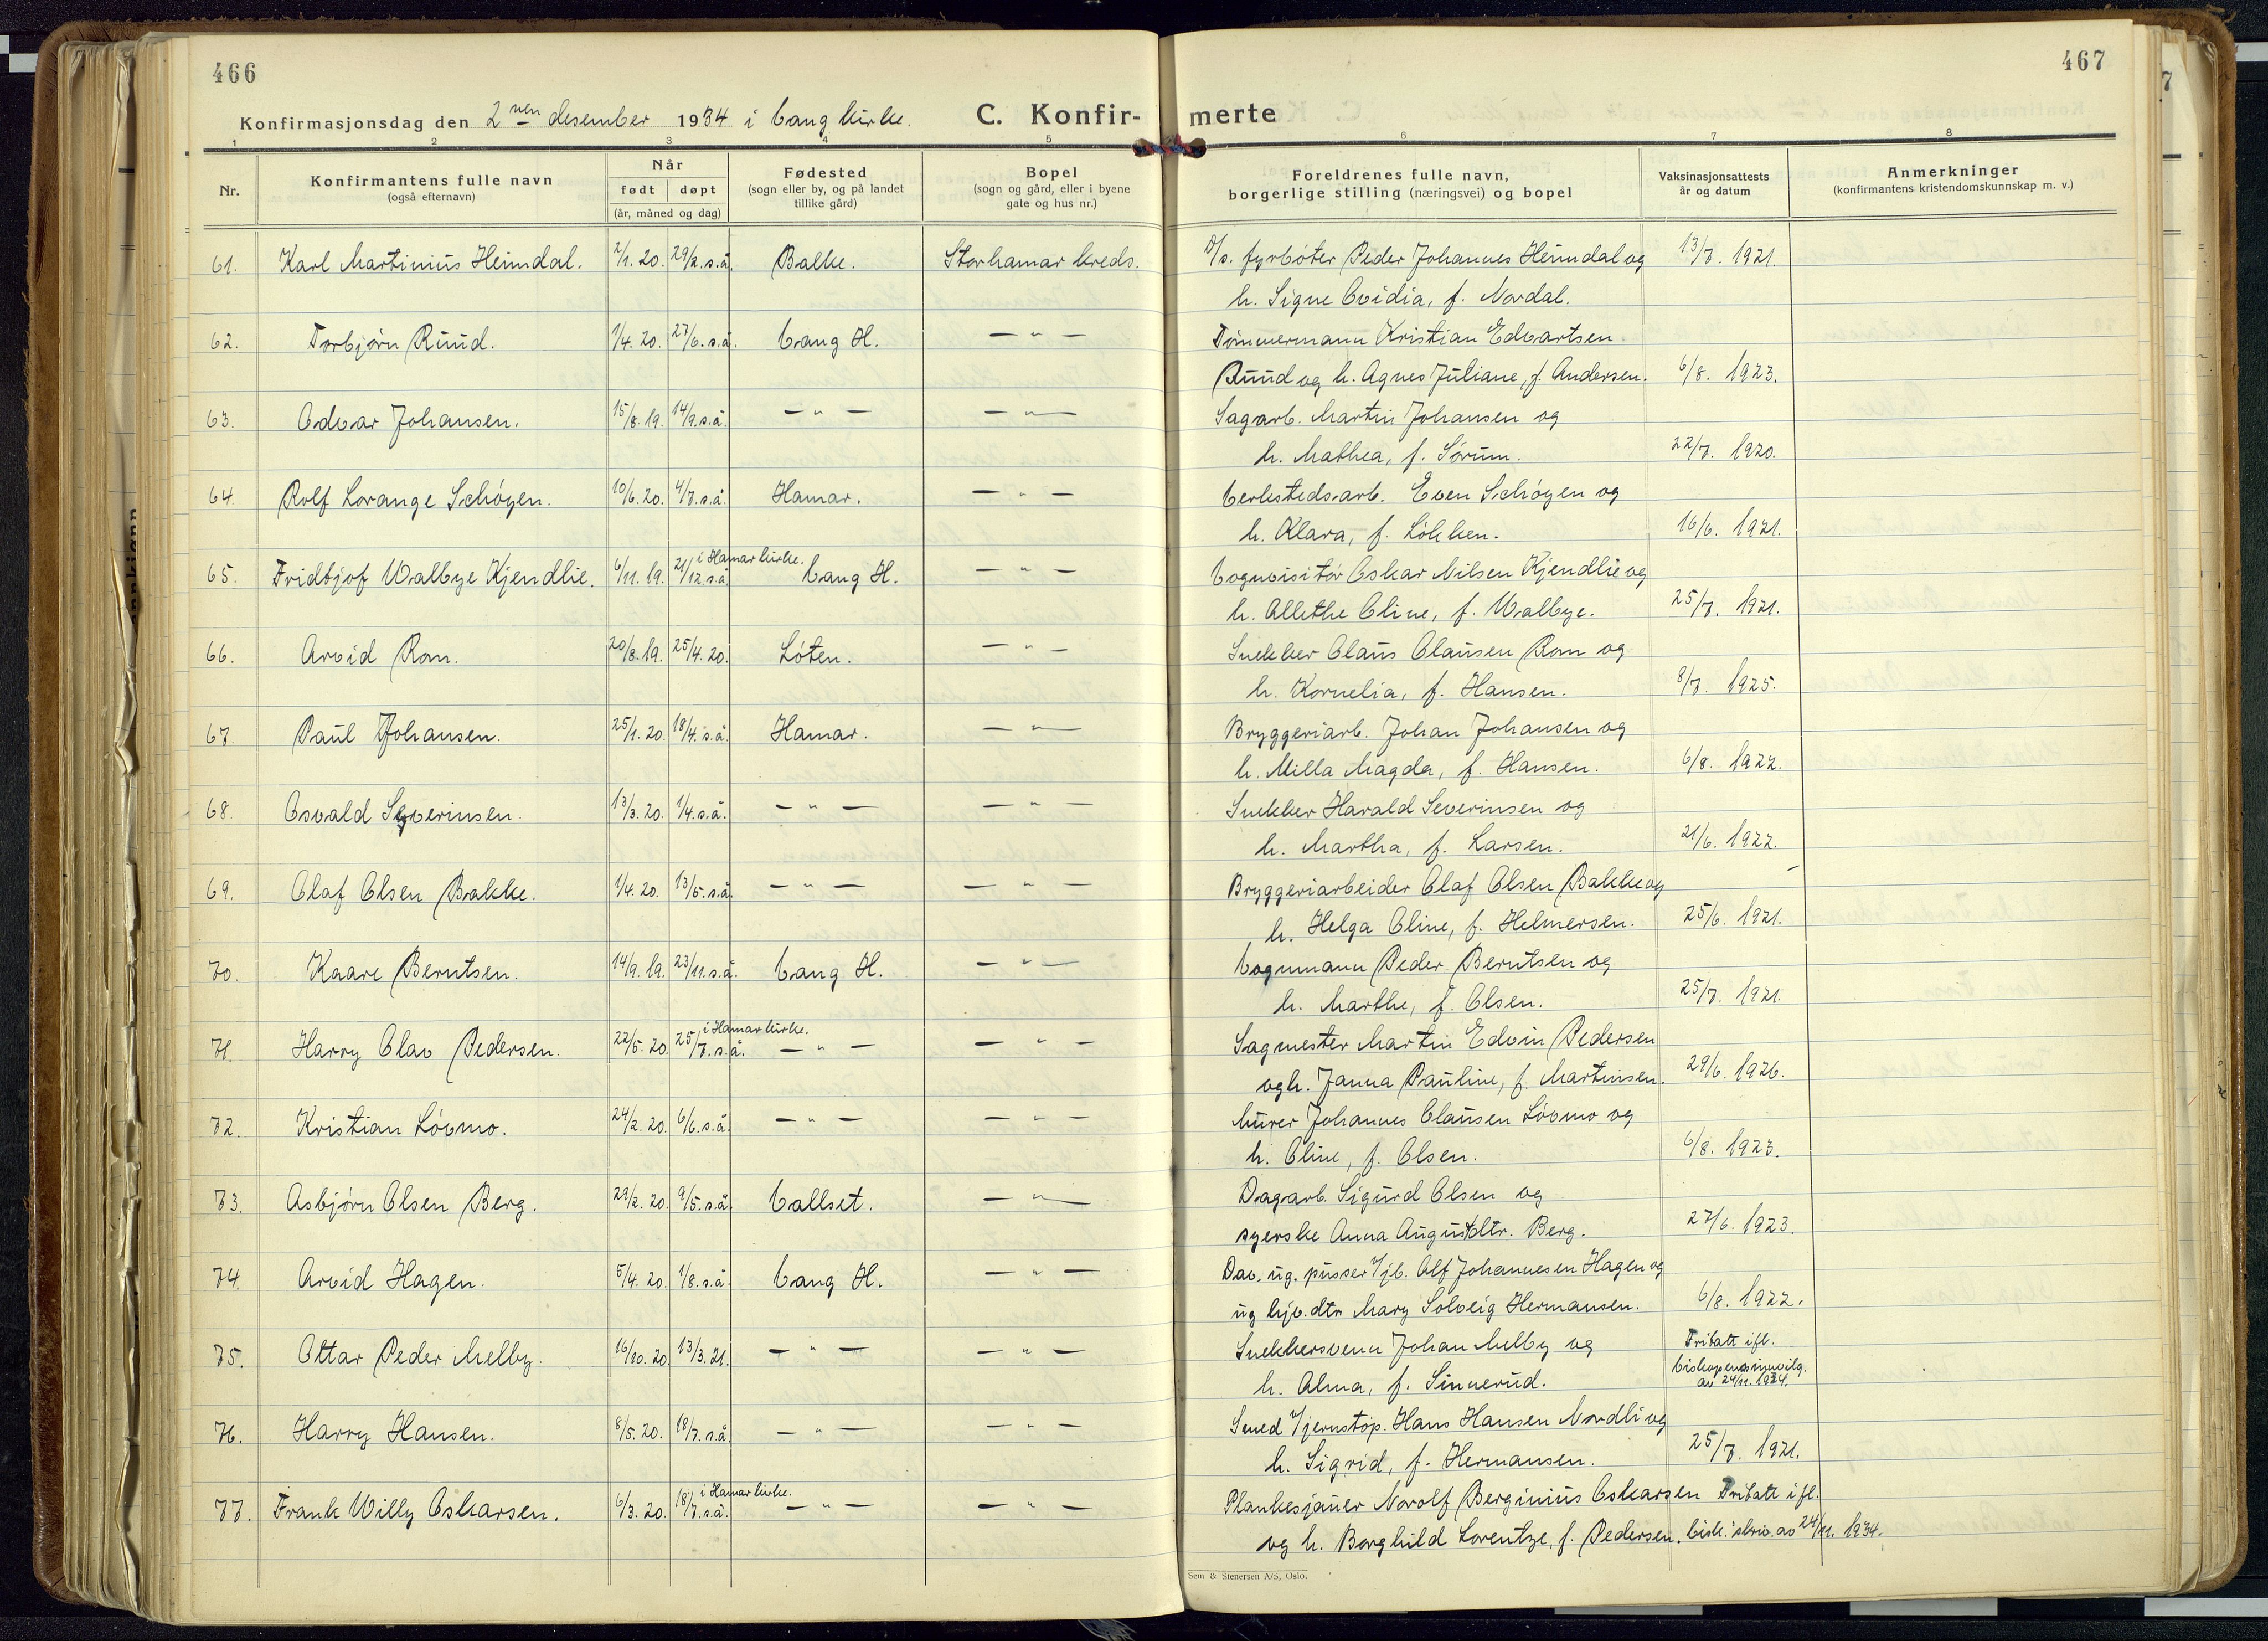 466
467
Konfirmasjonsdag den 2nen desember 1934 i Vang kirke.
C. Konfirmerte
1 2 3 4 5 6 7 8
Nr. Konfirmantens fulle navn (også efternavn) Når født døpt (år, måned og dag) Fødested (sogn eller by, og på landet tillike gård) Bopel (sogn og gård, eller i byene gate og hus nr.) Foreldrenes fulle navn, borgerlige stilling (næringsvei) og bopel Vaksinasjonsattests år og datum Anmerkninger (konfirmantens kristendomskunnskap m. v.)
61. Karl Martinius Heimdal. 2/1. 20. 29/2. s.å. Balke. Storhamar kreds. D/s. fyrbøter Peder Johannes Heimdal og 13/7. 1921.
h. Signe Ovidia, f. Nordal.
62. Torbjørn Ruud. 1/4. 20. 27/6. s.å. Vang H. — " — Tømmermann Kristian Edvartsen
Ruud og h. Agnes Juliane, f. Andersen. 6/8. 1923.
63. Odvar Johansen. 15/8. 19. 14/9. s.å. — " — — " — Sagarb. Martin Johansen og
h. Mathea, f. Sørum. 22/7. 1920.
64. Rolf Lorange Schøyen. 10/6. 20. 4/7. s.å. Hamar. — " — Verkstedsarb. Even Schøyen og
h. Klara, f. Løkken. 16/6. 1921.
65. Fridtjof Walbye Kjendlie. 6/11. 19. 21/12. s.å. i Hamar kirke. Vang H. — " — Vognvisitør Oskar Nilsen Kjendlie og
h. Allethe Oline, f. Walbye. 25/7. 1921.
66. Arvid Rom. 20/8. 19. 25/4. 20. Løten. — " — Snekker Olaus Olausen Rom og
h. Kornelia, f. Hansen. 8/7. 1925.
67. Paul Johansen. 25/1. 20. 18/4. s.å. Hamar. — " — Bryggeriarb. Johan Johansen og
h. Milla Magda, f. Hansen. 6/8. 1922.
68. Osvald Syverinsen. 13/3. 20. 1/4. s.å. — " — — " — Snekker Harald Severinsen og
h. Martha, f. Larsen. 21/6. 1922.
69. Olaf Olsen Bakke. 1/4. 20. 13/5. s.å. — " — — " — Bryggeriarbeider Olaf Olsen Bakke og
h. Helga Oline, f. Helmersen. 25/6. 1921.
70. Kaare Berntsen. 14/9. 19. 23/11. s.å. Vang H. — " — Vognmann Peder Berntsen og
h. Marthe, f. Olsen. 25/7. 1921.
71. Harry Olav Pedersen. 22/5. 20. 25/7. s.å. i Hamar kirke. — " — — " — Sagmester Martin Edvin Pedersen
og h. Janna Pauline, f. Martinsen. 29/6. 1926.
72. Kristian Løvmo. 24/2. 20. 6/6. s.å. — " — — " — Murer Johannes Olausen Løvmo og
h. Oline, f. Olsen. 6/8. 1923.
73. Asbjørn Olsen Berg. 29/2. 20. 9/5. s.å. Vallset. — " — Dagarb. Sigurd Olsen og
syerske Anna Augustdtr. Berg. 27/6. 1923.
74. Arvid Hagen. 5/4. 20. 1/8. s.å. Vang H. — " — Dav. ug. pusser v/jb. Alf Johannesen Hagen og
ug hjv. dtr. Mary Solveig Hermansen. 6/8. 1922.
75. Ottar Peder Melby. 16/10. 20. 13/3. 21. — " — — " — Snekkersvenn Johan Melby og Fritatt ifl.
h. Alma, f. Sinnerud. biskopens innvilg. av 24/11. 1934.
76. Harry Hansen. 8/5. 20. 18/7. s.å. — " — — " — Smed v/jernstøp. Hans Hansen Nordli og
h. Sigrid, f. Hermansen. 25/7. 1921.
77. Frank Willy Oskarsen. 6/3. 20. 18/7. s.å. i Hamar kirke. — " — — " — Plankesjauer Norolf Berginius Oskarsen Fritatt ifl.
og h. Borghild Lorentze, f. Pedersen. bisk. skriv. av 24/11. 1934.
Sem & Stenersen A/S, Oslo.